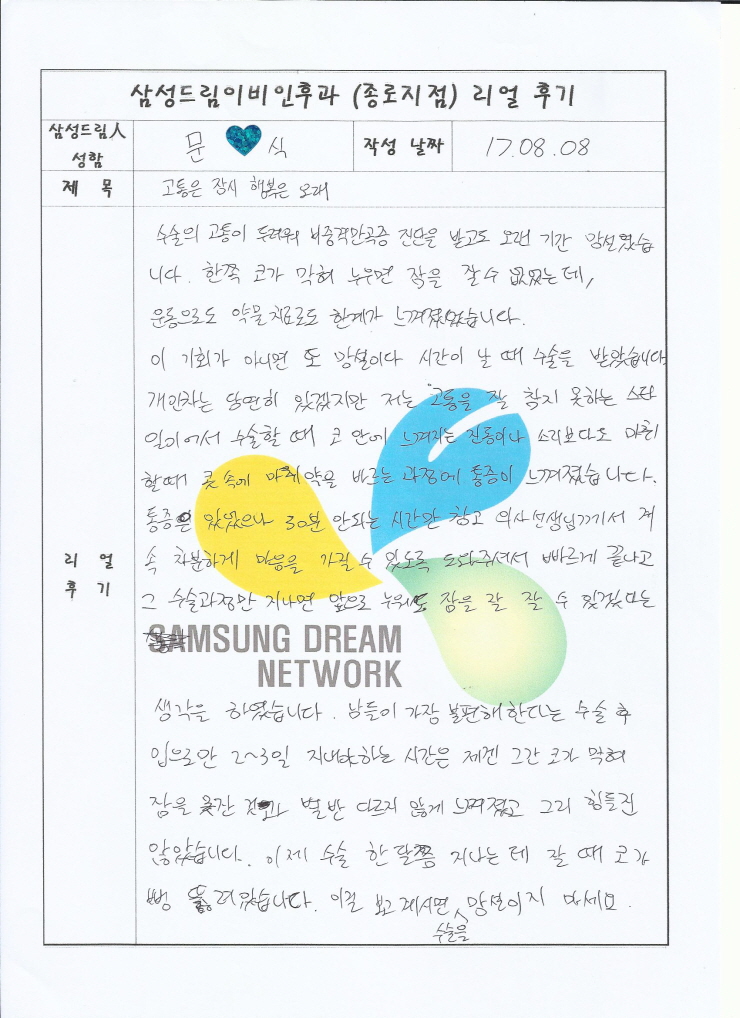 삼성드림이비인후과 (종로지점) 리얼 후기
삼성드림人 성함 문 식 작성 날짜 17.08.08
제 목 고통은 잠시 행복은 오래
리 얼 후 기
수술의 고통이 두려워 비중격만곡증 진단을 받고도 오랜 기간 망설였습
니다. 한쪽 코가 막혀 누우면 잠을 잘 수 없었는데,
운동으로도 약물치료로도 한계가 느껴졌었습니다.
이 기회가 아니면 또 망설이다 시간이 날 때 수술을 받았습니다.
개인차는 당연히 있겠지만 저는 고통을 잘 참지 못하는 스타
일이어서 수술할 때 코 안에 느껴지는 진동이나 소리보다도 마취
할때 콧속에 마취약을 바르는 과정에 통증이 느껴졌습니다.
통증은 있었으나 30분 안되는 시간만 참고 의사선생님께서 계
속 차분하게 마음을 가질 수 있도록 도와주셔서 빠르게 끝나고
그 수술과정만 지나면 앞으로 누워도 잠을 잘 잘 수 있겠다는
SAMSUNG DREAM
NETWORK
생각을 하였습니다. 남들이 가장 불편해한다는 수술 후
입으로만 2~3일 지내야하는 시간은 제겐 그간 코가 막혀
잠을 못잔 것과 별반 다르지 않게 느껴졌고 그리 힘들진
않았습니다. 이제 수술 한 달쯤 지나는데 잘 때 코가
뻥 뚫려있습니다. 이걸 보고계시면 수술을 망설이지 마세요.